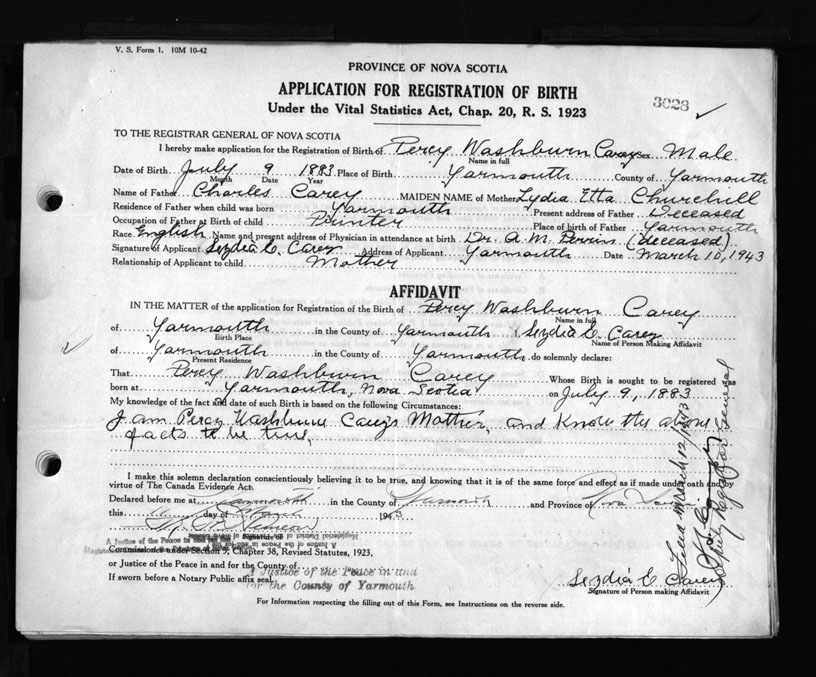 V. S. Form 1. 10M 10-42
PROVINCE OF NOVA SCOTIA
APPLICATION FOR REGISTRATION OF BIRTH
Under the Vital Statistics Act, Chap. 20, R. S. 1923
3028 ✓
TO THE REGISTRAR GENERAL OF NOVA SCOTIA
I hereby make application for the Registration of Birth of Percy Washburn Carey Sex Male
Name in full
Date of Birth July 9 1883 Place of Birth Yarmouth County of Yarmouth
Month Date Year
Name of Father Charles Carey MAIDEN NAME of Mother Lydia Etta Churchill
Residence of Father when child was born Yarmouth Present address of Father Deceased
Occupation of Father at Birth of child Printer Place of birth of Father Yarmouth
Race English Name and present address of Physician in attendance at birth Dr. A. M. Perrin (deceased)
Signature of Applicant Lydia E. Carey Address of Applicant Yarmouth Date March 10, 1943
Relationship of Applicant to child Mother
AFFIDAVIT
IN THE MATTER of the application for Registration of the Birth of Percy Washburn Carey
Name in full
of Yarmouth in the County of Yarmouth I Lydia E. Carey
Birth Place Name of Person Making Affidavit
✓ of Yarmouth in the County of Yarmouth do solemnly declare:
Present Residence
That Percy Washburn Carey Whose Birth is sought to be registered was
born at Yarmouth, Nova Scotia on July 9, 1883
My knowledge of the fact and date of such Birth is based on the following Circumstances:
I am Percy Washburn Carey's Mother, and know the above
facts to be true,
I make this solemn declaration conscientiously believing it to be true, and knowing that it is of the same force and effect as if made under oath and by
virtue of The Canada Evidence Act.
Declared before me at Yarmouth in the County of Yarmouth and Province of Nova Scotia
this day of March 1943
A Justice of the Peace in and for the
Commissioner under Section 9, Chapter 38, Revised Statutes, 1923,
or Justice of the Peace in and for the County of
A Justice of the Peace in and
for the County of Yarmouth
If sworn before a Notary Public affix seal.
Lydia E. Carey
Signature of Person making Affidavit
For Information respecting the filling out of this Form, see Instructions on the reverse side.
March 12/1943
Deputy Registrar General